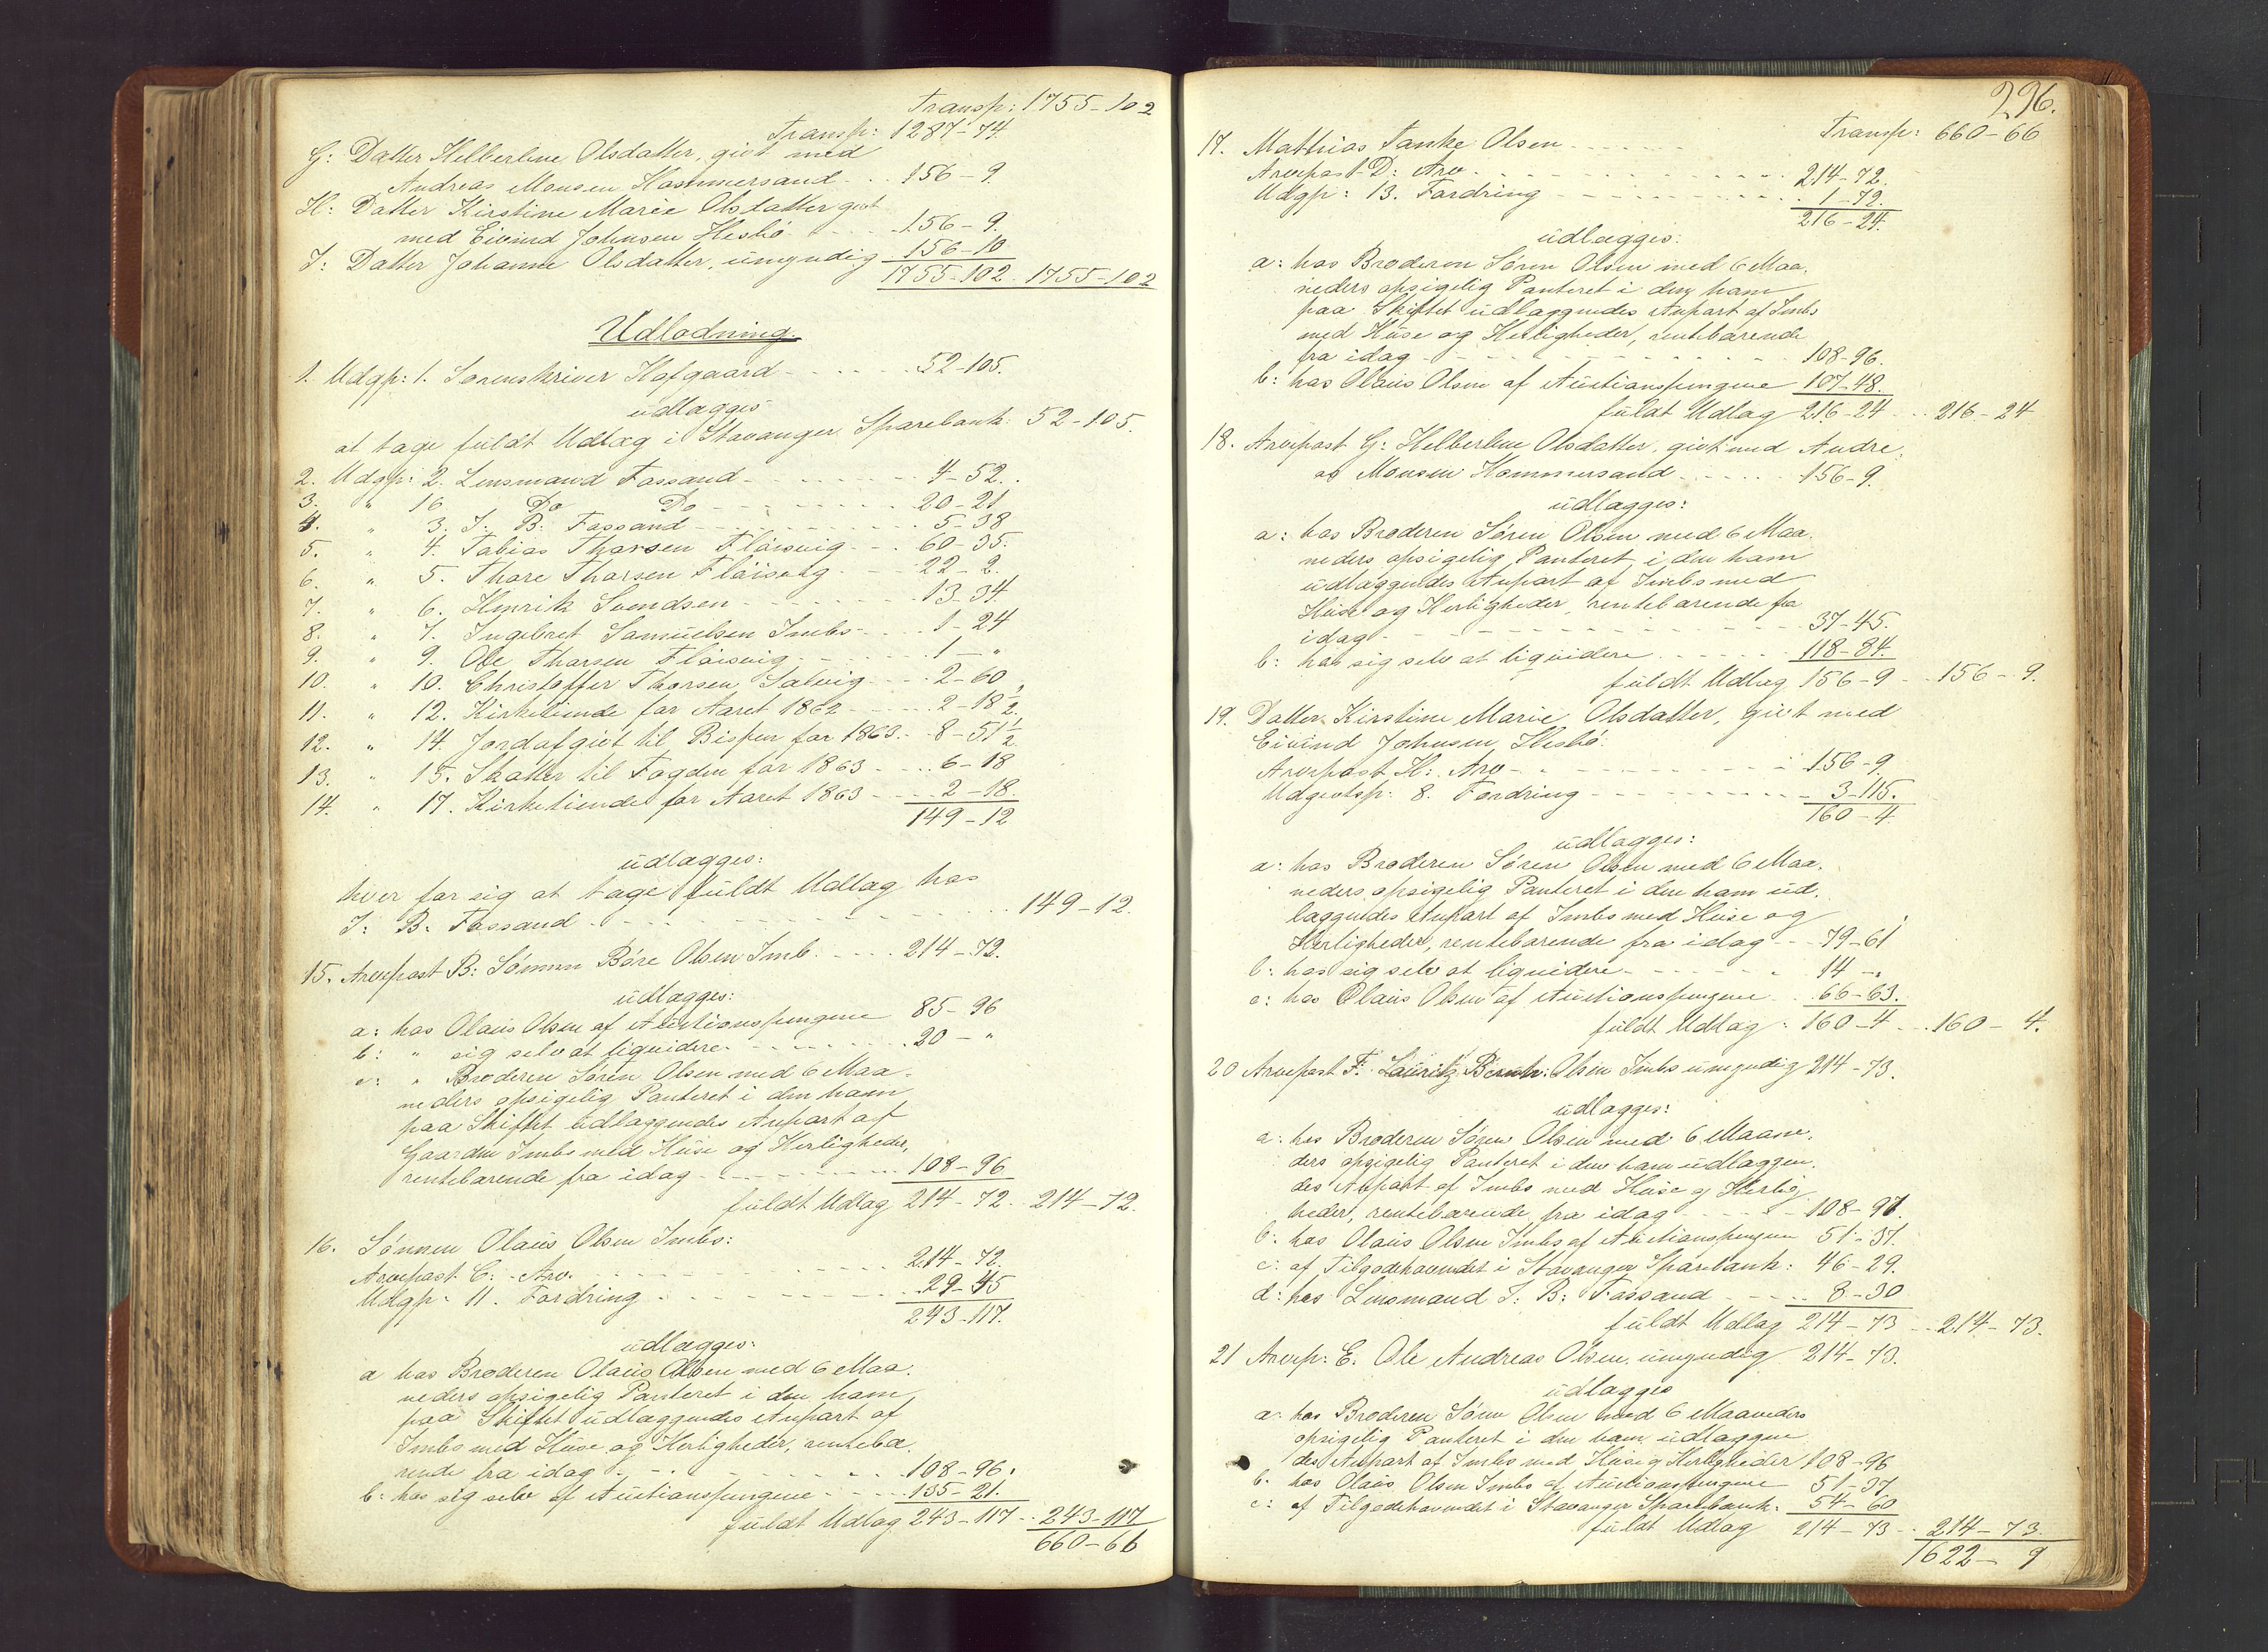 Transp: 1755-102
Transp: 1287-74.
G: Datter Helberline Olsdatter, givt med
Andreas Monsen Hammersand . . 156-9.
H: Datter Kirstine Marie Olsdatter givt
med Eivind Johnsen Hesbø . . . 156-9.
I: Datter Johanne Olsdatter, umyndig 156-10
1755-102. 1755-102
Udlodning.
1. Udgp: 1. Sorenskriver Hofgaard - - - - - 52-105.
udlægges
at tage fuldt Udlæg i Stavanger Sparebank: 52-105.
2. Udgp: 2. Lensmand Fossand - - - - - 4-52.
3. " 16 Do Do - - - - - 20-21
4. " 3. T: B: Fossand - - - - - 5-38
5. " 4. Tobias Thorsen Fløisvig - - - 60-35.
6. " 5. Thore Thorsen Fløisvig - - - 22-2.
7. " 6. Henrik Svendsen - - - - - 13-34
8. " 7. Ingebret Samuelsen Imbs - - - 1-24
9. " 9. Ole Thorsen Fløisvig - - - - 1-"
10. " 10. Christoffer Thorsen Salvig - - - 2-60
11. " 12. Kirketiende for Aaret 1862 - - - 2-18½.
12. " 14. Jordafgivt til Bispen for 1863. - 8-51½
13. " 15. Skatter til Fogden for 1863 - - - 6-18
14. " 17. Kirketiende for Aaret 1863 - - - 2-18.
149-12
udlægges:
hver for sig at tage fuldt Udlæg hos
T: B: Fossand - - - - - 149-12.
15. Arvepost B: Sønnen Børe Olsen Imb. - - - 214-72.
udlægges:
a: hos Olaus Olsen af Auctionspengene 85-96
b: " sig selv at liqvidere - - - - 20-"
c: " Broderen Søren Olsen med 6 Maa-
neders opsigelig Panteret i den ham
paa Skiftet udlæggendes Anpart af
Gaarden Imbs med Huse og Herligheder,
rentebærende fra idag - - - - - 108-96
fuldt Udlæg 214-72. 214-72.
16. Sønnen Olaus Olsen Imbs:
Arvepost C: Arv. - - - - - 214-72.
Udgp: 11. Fordring - - - - - 29-45
243-117.
udlægges:
a hos Broderen Olaus Olsen med 6 Maa-
neders opsigelig Panteret i den ham
paa Skiftet udlæggendes Anpart af
Imbs med Huse og Herligheder, rentebæ-
rende fra idag - - - - - 108-96.
b: hos sig selv af Auctionspengene - - - 135-21.
fuldt Udlæg 243-117 - - 243-117
660-66
296.
Transp: 660-66
17. Mathias Tanke Olsen - - - - -
Arvepost D: Arv - - - - - 214-72.
Udgp: 13. Fordring - - - - - 1-72.
216-24.
udlægges:
a: hos Broderen Søren Olsen med 6 Maa-
neders opsigelig Panteret i den ham
paa Skiftet udlæggendes Anpart af Imbs
med Huse og Herligheder, rentebærende
fra idag - - - - - 108-96.
b: hos Olaus Olsen af Auctionspengene 107-48.
fuldt Udlæg 216-24 - - 216-24
18. Arvepost G: Helberline Olsdatter, givt med Andre-
as Monsen Hammersand - - - - 156-9.
udlægges:
a: hos Broderen Søren Olsen med 6 Maa-
neders opsigelig Panteret i den ham
udlæggendes Anpart af Imbs med
Huse og Herligheder, rentebærende fra
idag - - - - - 37-45.
b: hos sig selv at liqvidere - - - - 118-84.
fuldt Udlæg 156-9 - - 156-9.
19. Datter Kirstine Marie Olsdatter, givt med
Eivind Johnsen Hesbø:
Arvepost H: Arv - - - - - 156-9
Udgivtsp: 8. Fordring - - - - - 3-115.
160-4.
udlægges:
a: hos Broderen Søren Olsen med 6 Maa-
neders opsigelig Panteret i den ham ud-
læggendes Anpart af Imbs med Huse og
Herligheder, rentebærende fra idag - - 79-61
b: hos sig selv at liqvidere - - - - - 14-"
c: hos Olaus Olsen af Auctionspengene - - 66-63.
fuldt Udlæg: 160-4 - - 160-4.
20 Arvepost F. Lauritz Bernh: Olsen Imbs umyndig 214-73.
udlægges:
a: hos Broderen Søren Olsen med 6 Maane-
ders opsigelig Panteret i den ham udlæggen-
des Anpart af Imbs med Huse og Herlig-
heder, rentebærende fra idag - - - - 108-97.
b: hos Olaus Olsen Imbs af Auctionspengene 51-37.
c: af Tilgodehavendet i Stavanger Sparebank: 46-29.
d: hos Lensmand T: B: Fossand - - - - 8-30
fuldt Udlæg 214-73 - - 214-73.
21 Arvep: E. Ole Andreas Olsen, umyndig 214-73.
udlægges
a: hos Broderen Søren Olsen med 6 Maaneders
opsigelig Panteret i den ham udlæggen
des Anpart af Imbs med Huse og Herligheder 108-96
b: hos Olaus Olsen Imbs af Auctionspengene 51-37
c: af Tilgodehavendet i Stavanger Sparebank: 54-60
fuldt Udlæg 214-73 - - 214-73.
1622-9